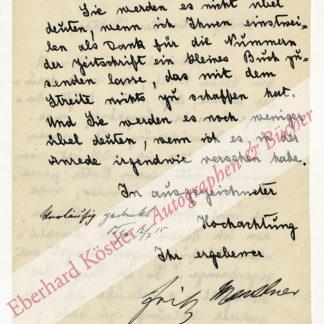 Sie werden es nicht übel
deuten, wenn ich Ihnen einstwei-
len als Dank für die Nummern
der Zeitschrift ein kleines Buch zu-
senden lasse, das mit dem
Streite nichts zu schaffen hat.
Und Sie werden es noch weniger
übel deuten, wenn ich es in der
Anrede irgendwie versehen habe.
In ausgezeichneter
Hochachtung
Vorläufig gedankt
Ihr ergebener
Fritz Mauthner
Eberhard Köstler · Autographen & Bücher